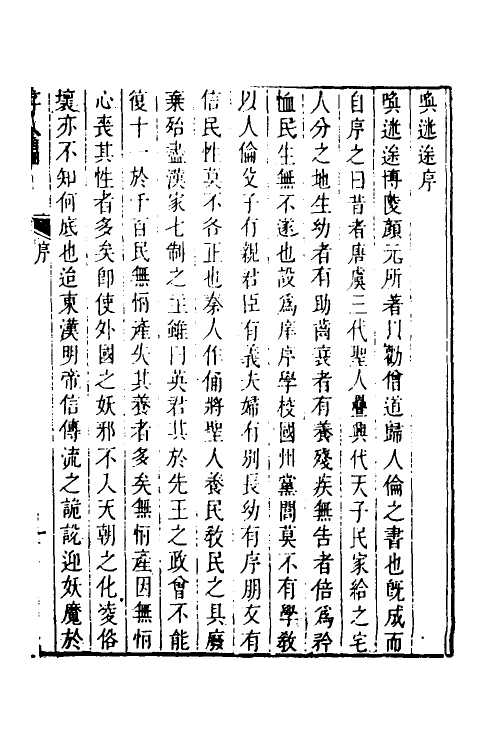 喚迷途序
喚迷途博陵顏元所著以勸僧道歸人倫之書也旣成而
自序之曰昔者唐虞三代聖人疊興代天子民家給之宅
人分之地生幼者有助萵衰者有養殘疾無告者倍爲矜
恤民生無不遂也設爲庠序學校國州黨閭莫不有學敎
以人倫父子有親君臣有義夫婦有別長幼有序朋友有
信民性莫不各正也秦人作俑將聖人養民敎民之具廢
棄殆盡漢家七制之主雖曰英君其於先王之政曾不能
復十一於千百民無恒產失其養者多矣無恒產因無恒
心喪其性者多矣卽使外國之妖邪不入天朝之化淩俗
壞亦不知何底也迨東漢明帝信傅流之詭說迎妖魔於
存人編
序
一